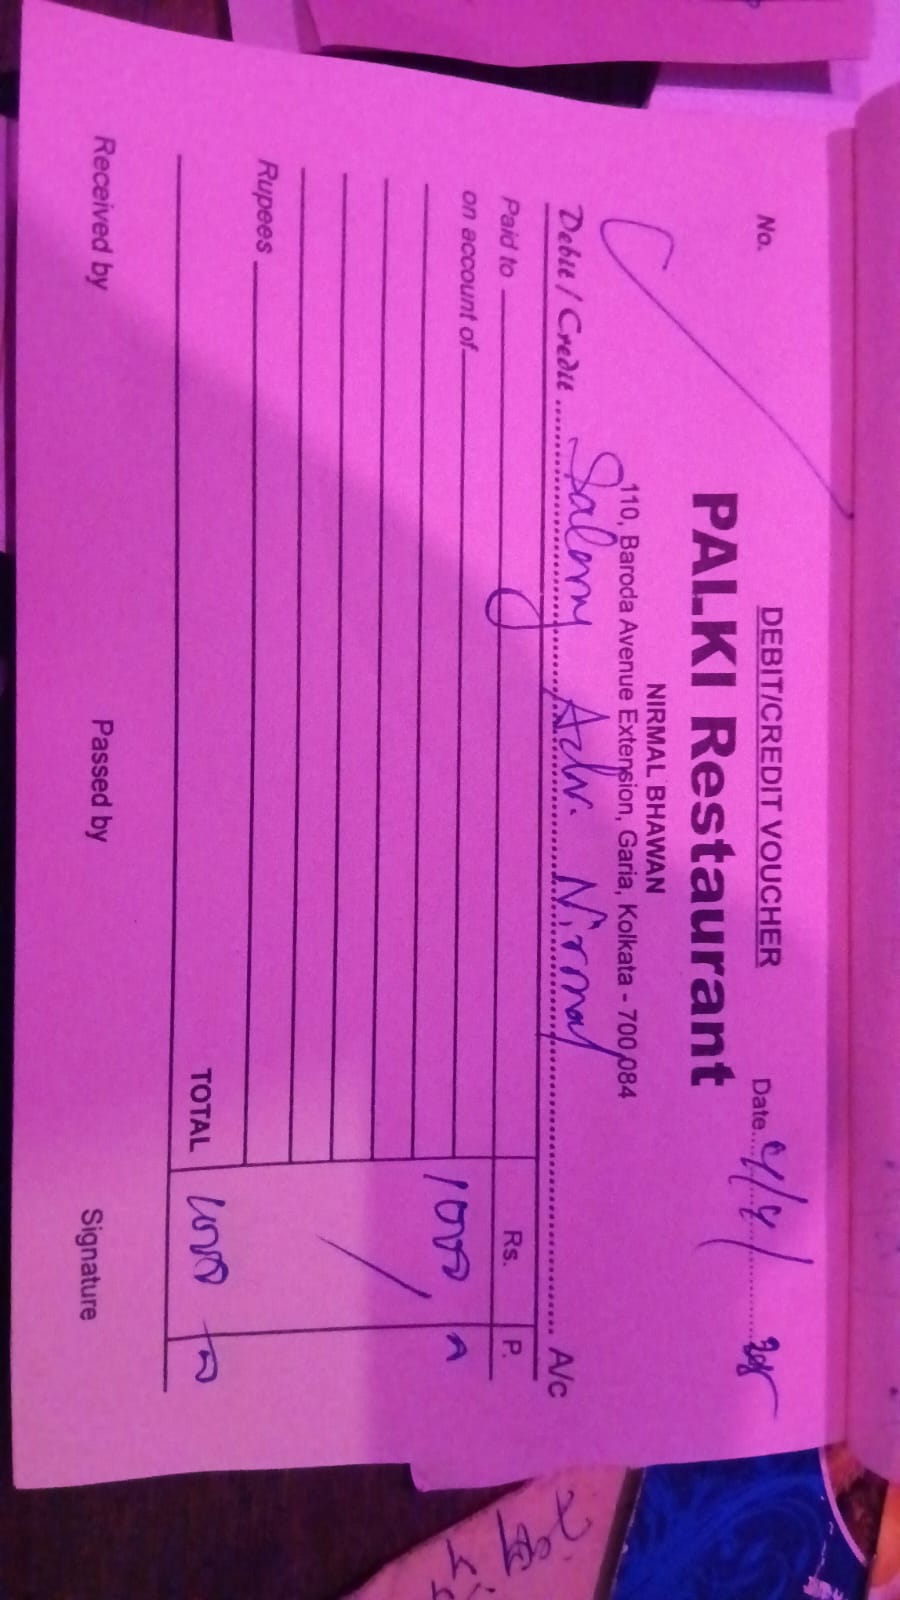 DEBIT/CREDIT VOUCHER
No.
Date 4/4/
PALKI Restaurant
NIRMAL BHAWAN
110, Baroda Avenue Extension, Garia, Kolkata - 700 084
Debit / Credit Salary Adv. Nirmal A/c
Paid to
Rs. P.
on account of 1000
Rupees
TOTAL 1000
Received by
Passed by
Signature